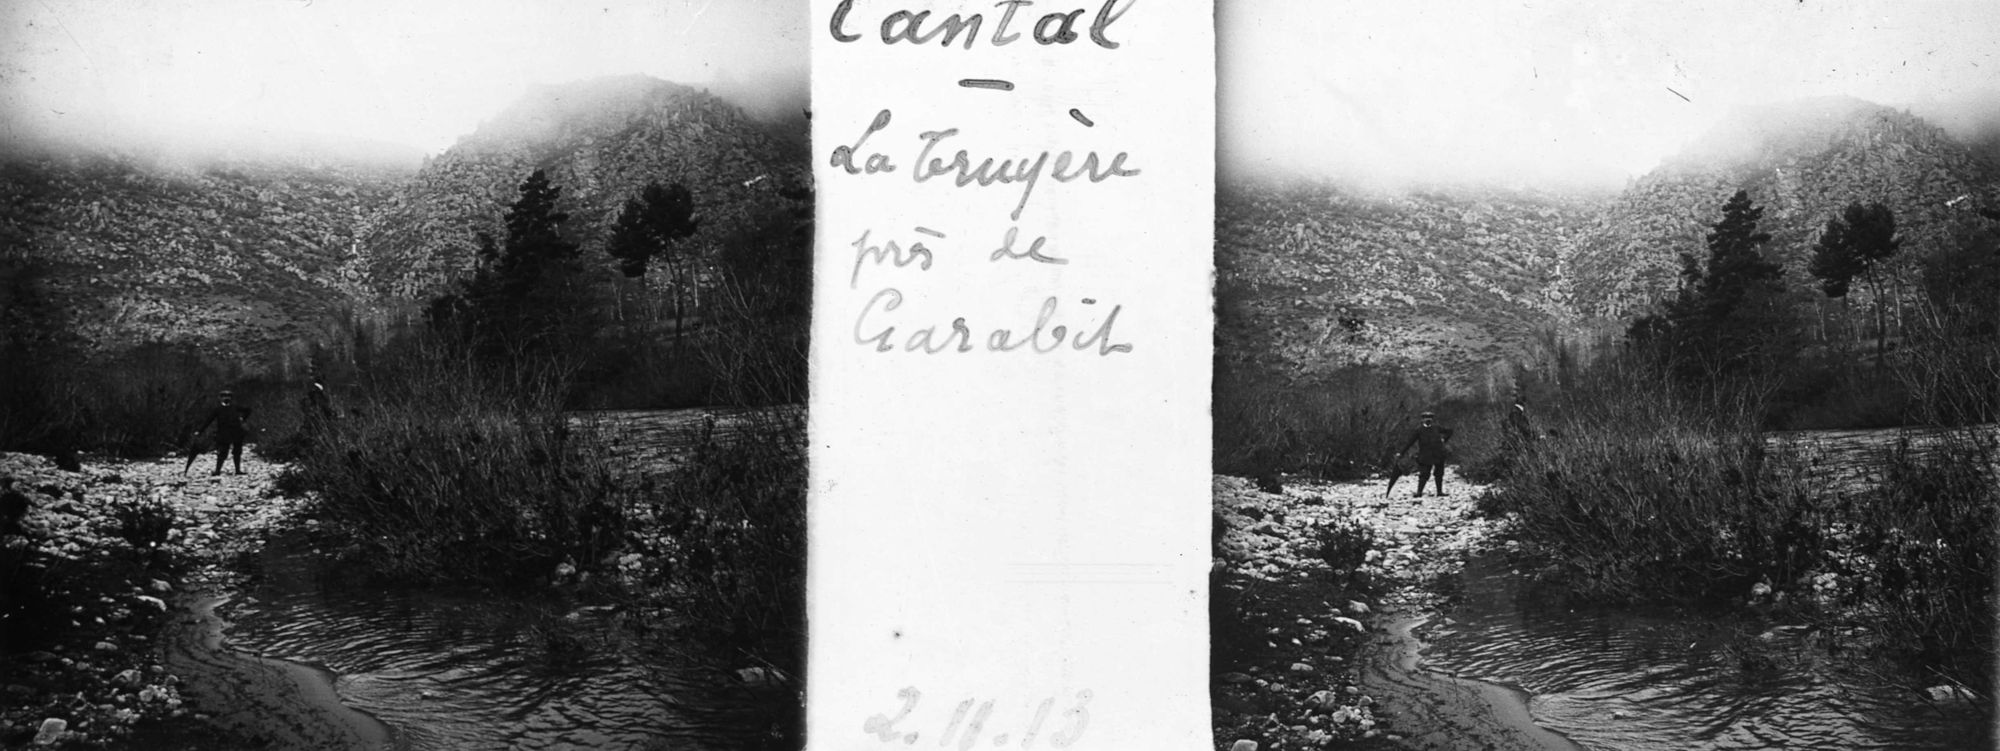 Cantal
—
La Truyère
près de
Garabit
2.11.13